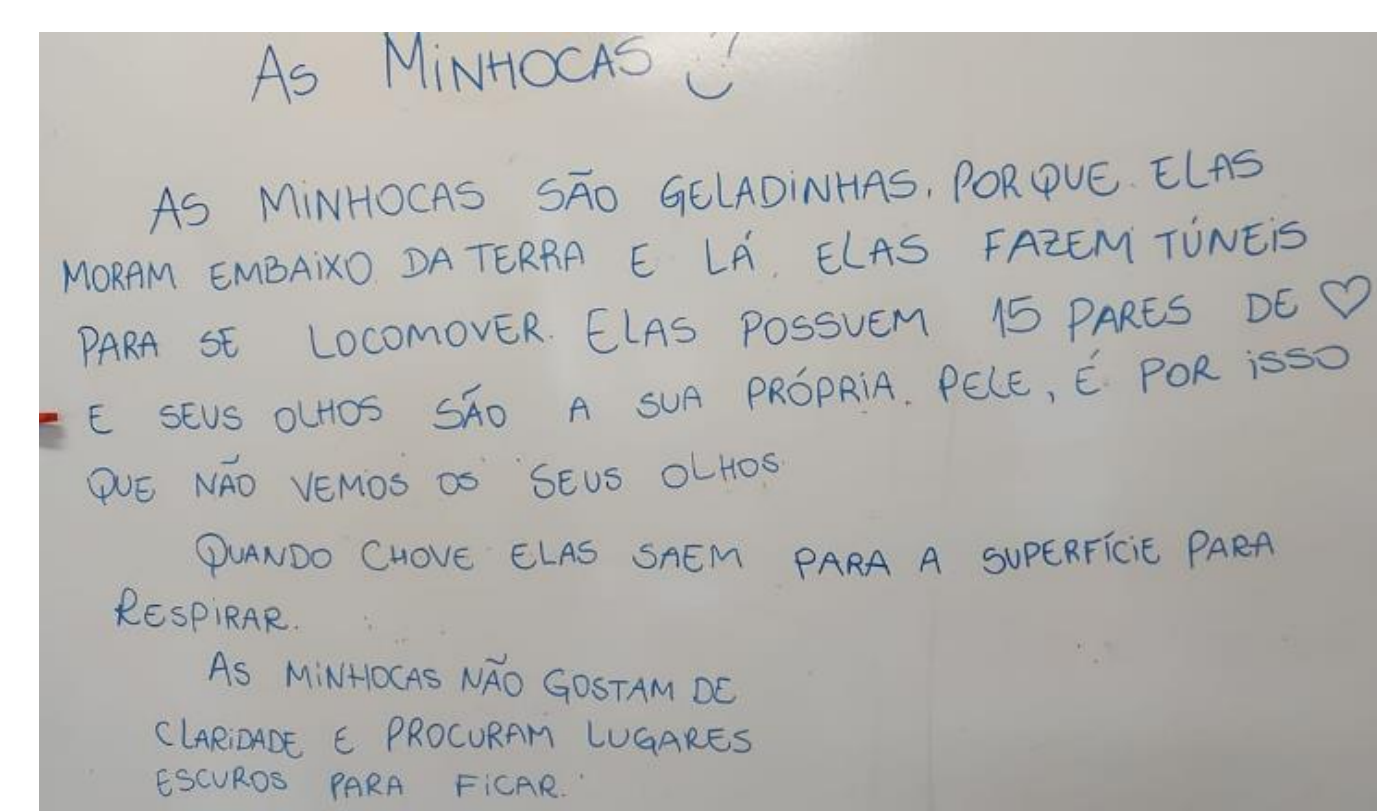 AS MINHOCAS
AS MINHOCAS SÃO GELADINHAS. PORQUE ELAS
MORAM EMBAIXO DA TERRA E LÁ ELAS FAZEM TÚNEIS
PARA SE LOCOMOVER. ELAS POSSUEM 15 PARES DE ♡
E SEUS OLHOS SÃO A SUA PRÓPRIA PELE, É POR ISSO
QUE NÃO VEMOS OS SEUS OLHOS.
QUANDO CHOVE ELAS SAEM PARA A SUPERFÍCIE PARA
RESPIRAR.
AS MINHOCAS NÃO GOSTAM DE
CLARIDADE E PROCURAM LUGARES
ESCUROS PARA FICAR.